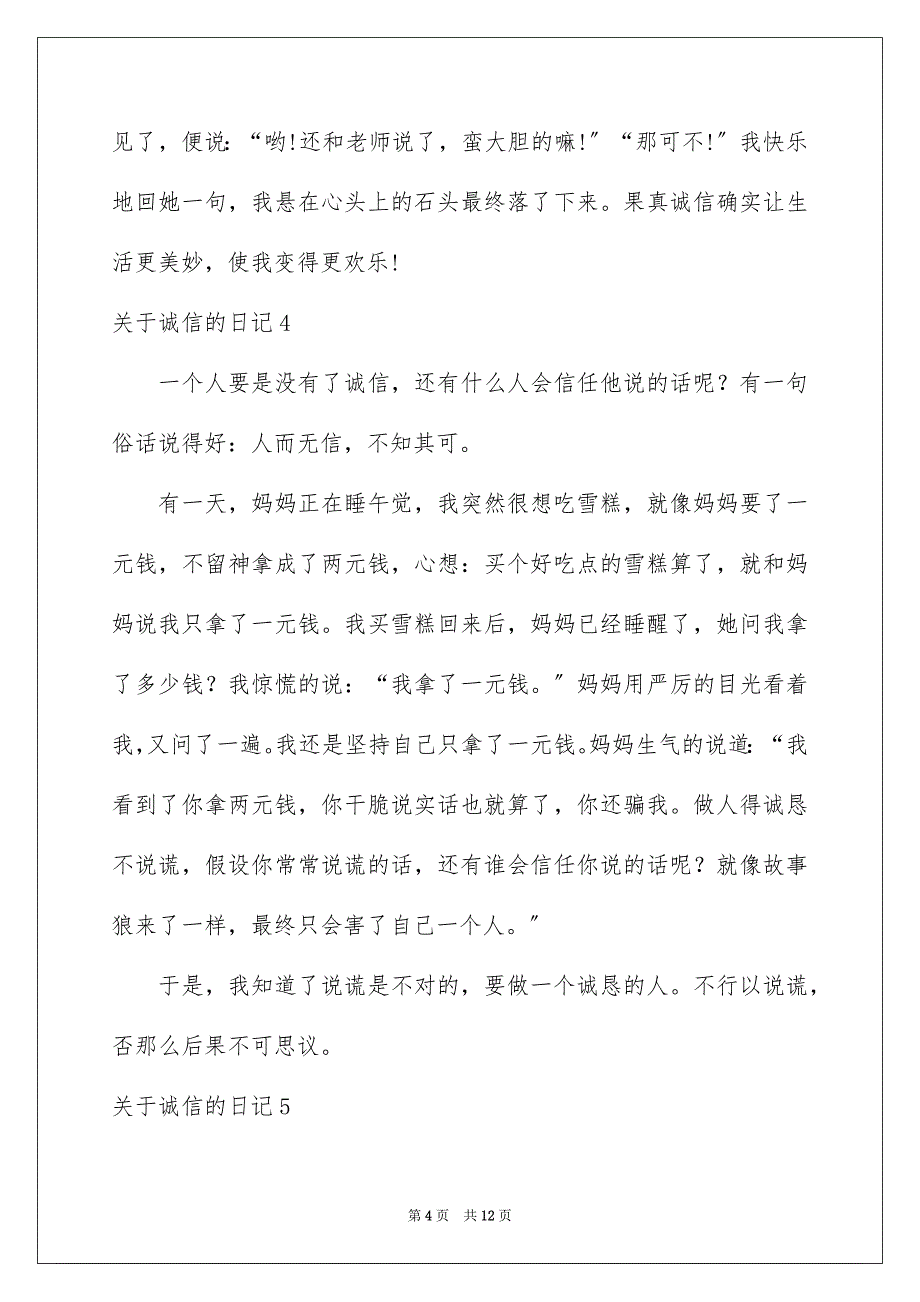 见了，便说：“哟!还和老师说了，蛮大胆的嘛!〞“那可不!〞我快乐
地回她一句，我悬在心头上的石头最终落了下来。果真诚信确实让生
活更美妙，使我变得更欢乐!
关于诚信的日记4
一个人要是没有了诚信，还有什么人会信任他说的话呢？有一句
俗话说得好：人而无信，不知其可。
有一天，妈妈正在睡午觉，我突然很想吃雪糕，就像妈妈要了一
元钱，不留神拿成了两元钱，心想：买个好吃点的雪糕算了，就和妈
妈说我只拿了一元钱。我买雪糕回来后，妈妈已经睡醒了，她问我拿
了多少钱？我惊慌的说：“我拿了一元钱。〞妈妈用严厉的目光看着
我，又问了一遍。我还是坚持自己只拿了一元钱。妈妈生气的说道：“我
看到了你拿两元钱，你干脆说实话也就算了，你还骗我。做人得诚恳
不说谎，假设你常常说谎的话，还有谁会信任你说的话呢？就像故事
狼来了一样，最终只会害了自己一个人。〞
于是，我知道了说谎是不对的，要做一个诚恳的人。不行以说谎，
否那么后果不可思议。
关于诚信的日记5
第4页 共12页